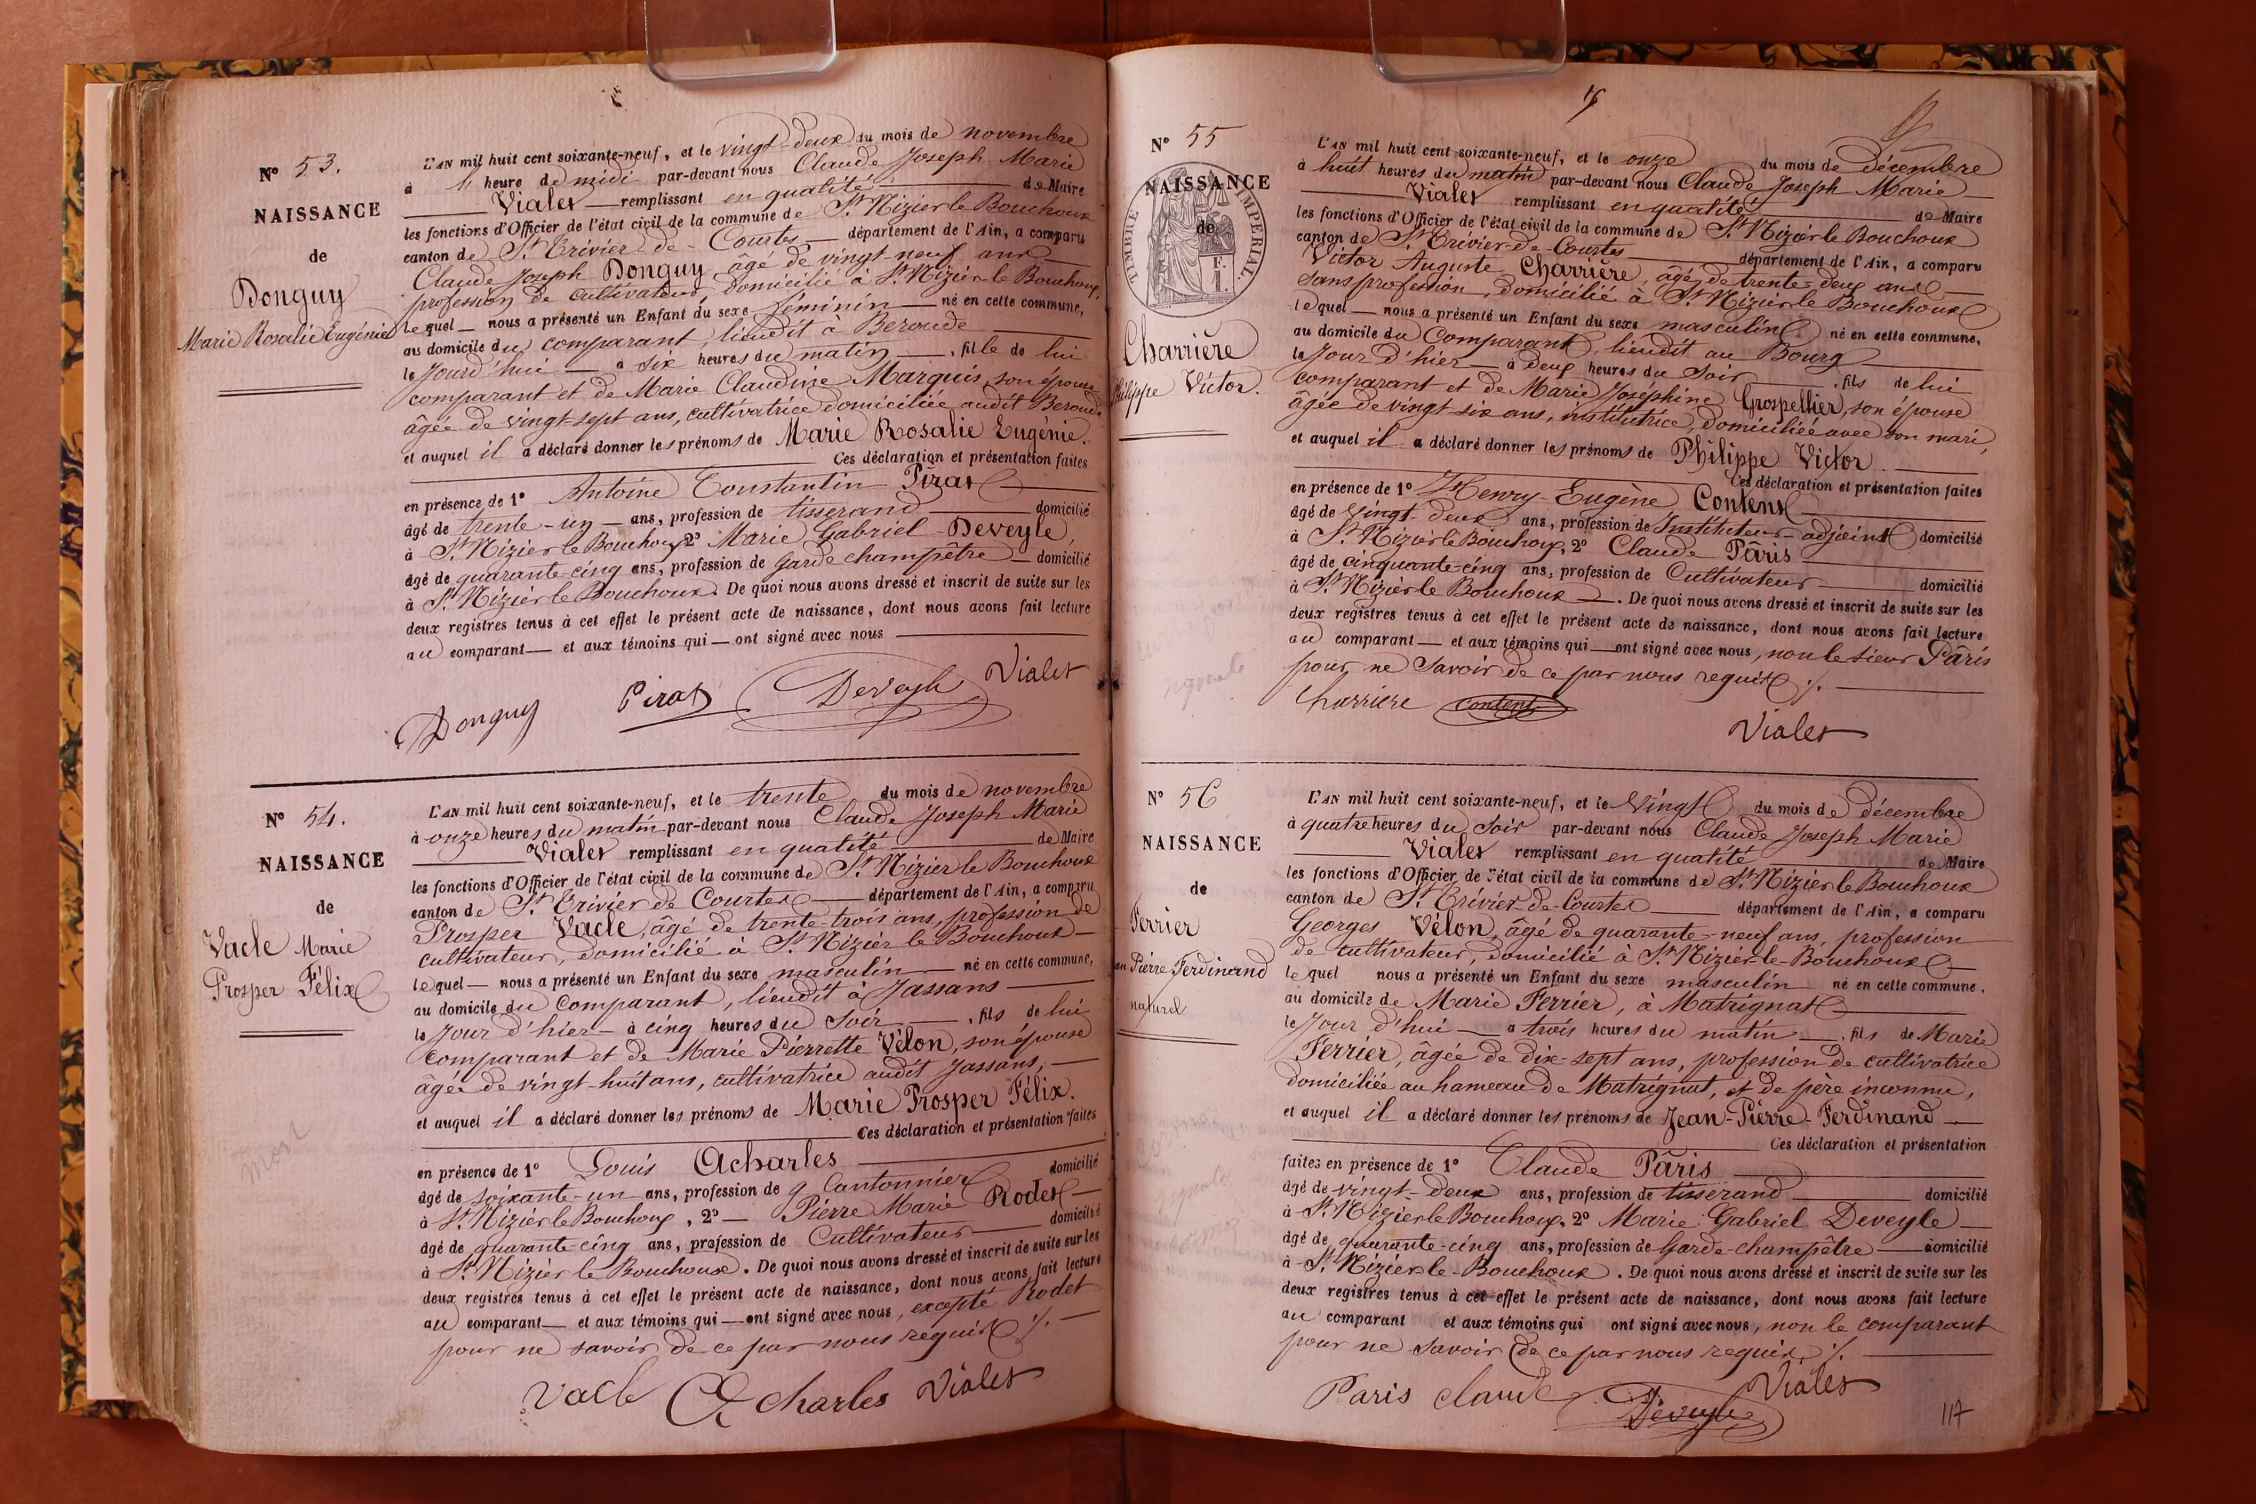 N° 53.
NAISSANCE
de
Donguy
Marie Rosalie Eugénie
L'AN mil huit cent soixante-neuf, et le vingt-deux du mois de novembre
à heure de midi par-devant nous Claude Joseph Marie
Vialet remplissant en qualité de Maire
les fonctions d'Officier de l'état civil de la commune de St Nizier le Bouchoux
canton de St Trivier-de-Courtes département de l'Ain, a comparu
Claude Joseph Donguy âgé de vingt-neuf ans
profession de cultivateur domicilié à St Nizier le Bouchoux,
lequel nous a présenté un Enfant du sexe féminin né en cette commune,
au domicile du comparant, lieudit à Beroude
le Jourd'hui à six heures du matin, fille de lui
comparant et de Marie Claudine Marquis, son épouse
âgée de vingt-sept ans, cultivatrice domiciliée audit Beroude
et auquel il a déclaré donner les prénoms de Marie Rosalie Eugénie.
Ces déclaration et présentation faites
en présence de 1° Antoine Constantin Pirat
âgé de trente-un ans, profession de tisserand domicilié
à St Nizier le Bouchoux 2° Marie Gabriel Deveyle,
âgé de quarante-cinq ans, profession de garde champêtre domicilié
à St Nizier le Bouchoux. De quoi nous avons dressé et inscrit de suite sur les
deux registres tenus à cet effet le présent acte de naissance, dont nous avons fait lecture
au comparant et aux témoins qui ont signé avec nous
Donguy Pirat Deveyle Vialet
N° 54.
NAISSANCE
de
Vacle Marie
Prosper Félix
mort
L'AN mil huit cent soixante-neuf, et le trente du mois de novembre
à onze heures du matin par-devant nous Claude Joseph Marie
Vialet remplissant en qualité de Maire
les fonctions d'Officier de l'état civil de la commune de St Nizier le Bouchoux
canton de St Trivier de Courtes département de l'Ain, a comparu
Prosper Vacle, âgé de trente-trois ans, profession de
cultivateur, domicilié à St Nizier le Bouchoux
lequel nous a présenté un Enfant du sexe masculin né en cette commune,
au domicile du comparant, lieudit à Jassans
le Jour d'hier à cinq heures du soir, fils de lui
comparant et de Marie Pierrette Vélon, son épouse
âgée de vingt-huit ans, cultivatrice audit Jassans,
et auquel il a déclaré donner les prénoms de Marie Prosper Félix.
Ces déclaration et présentation faites
en présence de 1° Louis Acharles
âgé de soixante-un ans, profession de Cantonnier domicilié
à St Nizier le Bouchoux, 2° Pierre Marie Rodet
âgé de quarante-cinq ans, profession de Cultivateur domicilié
à St Nizier le Bouchoux. De quoi nous avons dressé et inscrit de suite sur les
deux registres tenus à cet effet le présent acte de naissance, dont nous avons fait lecture
au comparant et aux témoins qui ont signé avec nous, excepté Rodet
pour ne savoir de ce par nous requis %.
Vacle Acharles Vialet
N° 55
NAISSANCE
de
TIMBRE IMPERIAL.
F.
1.
Charrière
Philippe Victor.
L'AN mil huit cent soixante-neuf, et le onze du mois de décembre
à huit heures du matin par-devant nous Claude Joseph Marie
Vialet remplissant en qualité de Maire
les fonctions d'Officier de l'état civil de la commune de St Nizier le Bouchoux
canton de St Trivier-de-Courtes département de l'Ain, a comparu
Victor Auguste Charrière, âgé de trente-deux ans
sans profession, domicilié à St Nizier le Bouchoux
lequel nous a présenté un Enfant du sexe masculin né en cette commune,
au domicile du Comparant, lieudit au Bourg
le Jour d'hier à deux heures du soir, fils de lui
comparant et de Marie Joséphine Grospellier, son épouse
âgée de vingt-six ans, institutrice, domiciliée avec son mari,
et auquel il a déclaré donner les prénoms de Philippe Victor.
Ces déclaration et présentation faites
en présence de 1° Henry-Eugène Content
âgé de vingt-deux ans, profession de Instituteur-adjoint domicilié
à St Nizier le Bouchoux, 2° Claude Pâris
âgé de cinquante-cinq ans, profession de Cultivateur domicilié
à St Nizier le Bouchoux. De quoi nous avons dressé et inscrit de suite sur les
deux registres tenus à cet effet le présent acte de naissance, dont nous avons fait lecture
au comparant et aux témoins qui ont signé avec nous, non le sieur Pâris
pour ne savoir de ce par nous requis %.
Charriere Content
Vialet
N° 56
NAISSANCE
de
Ferrier
Pierre Ferdinand
naturel
L'AN mil huit cent soixante-neuf, et le vingt du mois de décembre
à quatre heures du soir par-devant nous Claude Joseph Marie
Vialet remplissant en qualité de Maire
les fonctions d'Officier de l'état civil de la commune de St Nizier le Bouchoux
canton de St Trivier-de-Courtes département de l'Ain, a comparu
Georges Vélon, âgé de quarante-neuf ans, profession
de cultivateur, domicilié à St Nizier-le-Bouchoux
lequel nous a présenté un Enfant du sexe masculin né en cette commune,
au domicile de Marie Ferrier, à Matrignat
le Jour d'hui à trois heures du matin, fils de Marie
Ferrier, âgée de dix-sept ans, profession de cultivatrice
domiciliée au hameau de Matrignat, et de père inconnu,
et auquel il a déclaré donner les prénoms de Jean-Pierre-Ferdinand
Ces déclaration et présentation
faites en présence de 1° Claude Pâris
âgé de vingt-deux ans, profession de tisserand domicilié
à St Nizier le Bouchoux, 2° Marie Gabriel Deveyle
âgé de quarante-cinq ans, profession de Garde-champêtre domicilié
à St Nizier-le-Bouchoux. De quoi nous avons dressé et inscrit de suite sur les
deux registres tenus à cet effet le présent acte de naissance, dont nous avons fait lecture
au comparant et aux témoins qui ont signé avec nous, non le comparant
pour ne savoir de ce par nous requis %.
Paris claude Deveyle Vialet
117